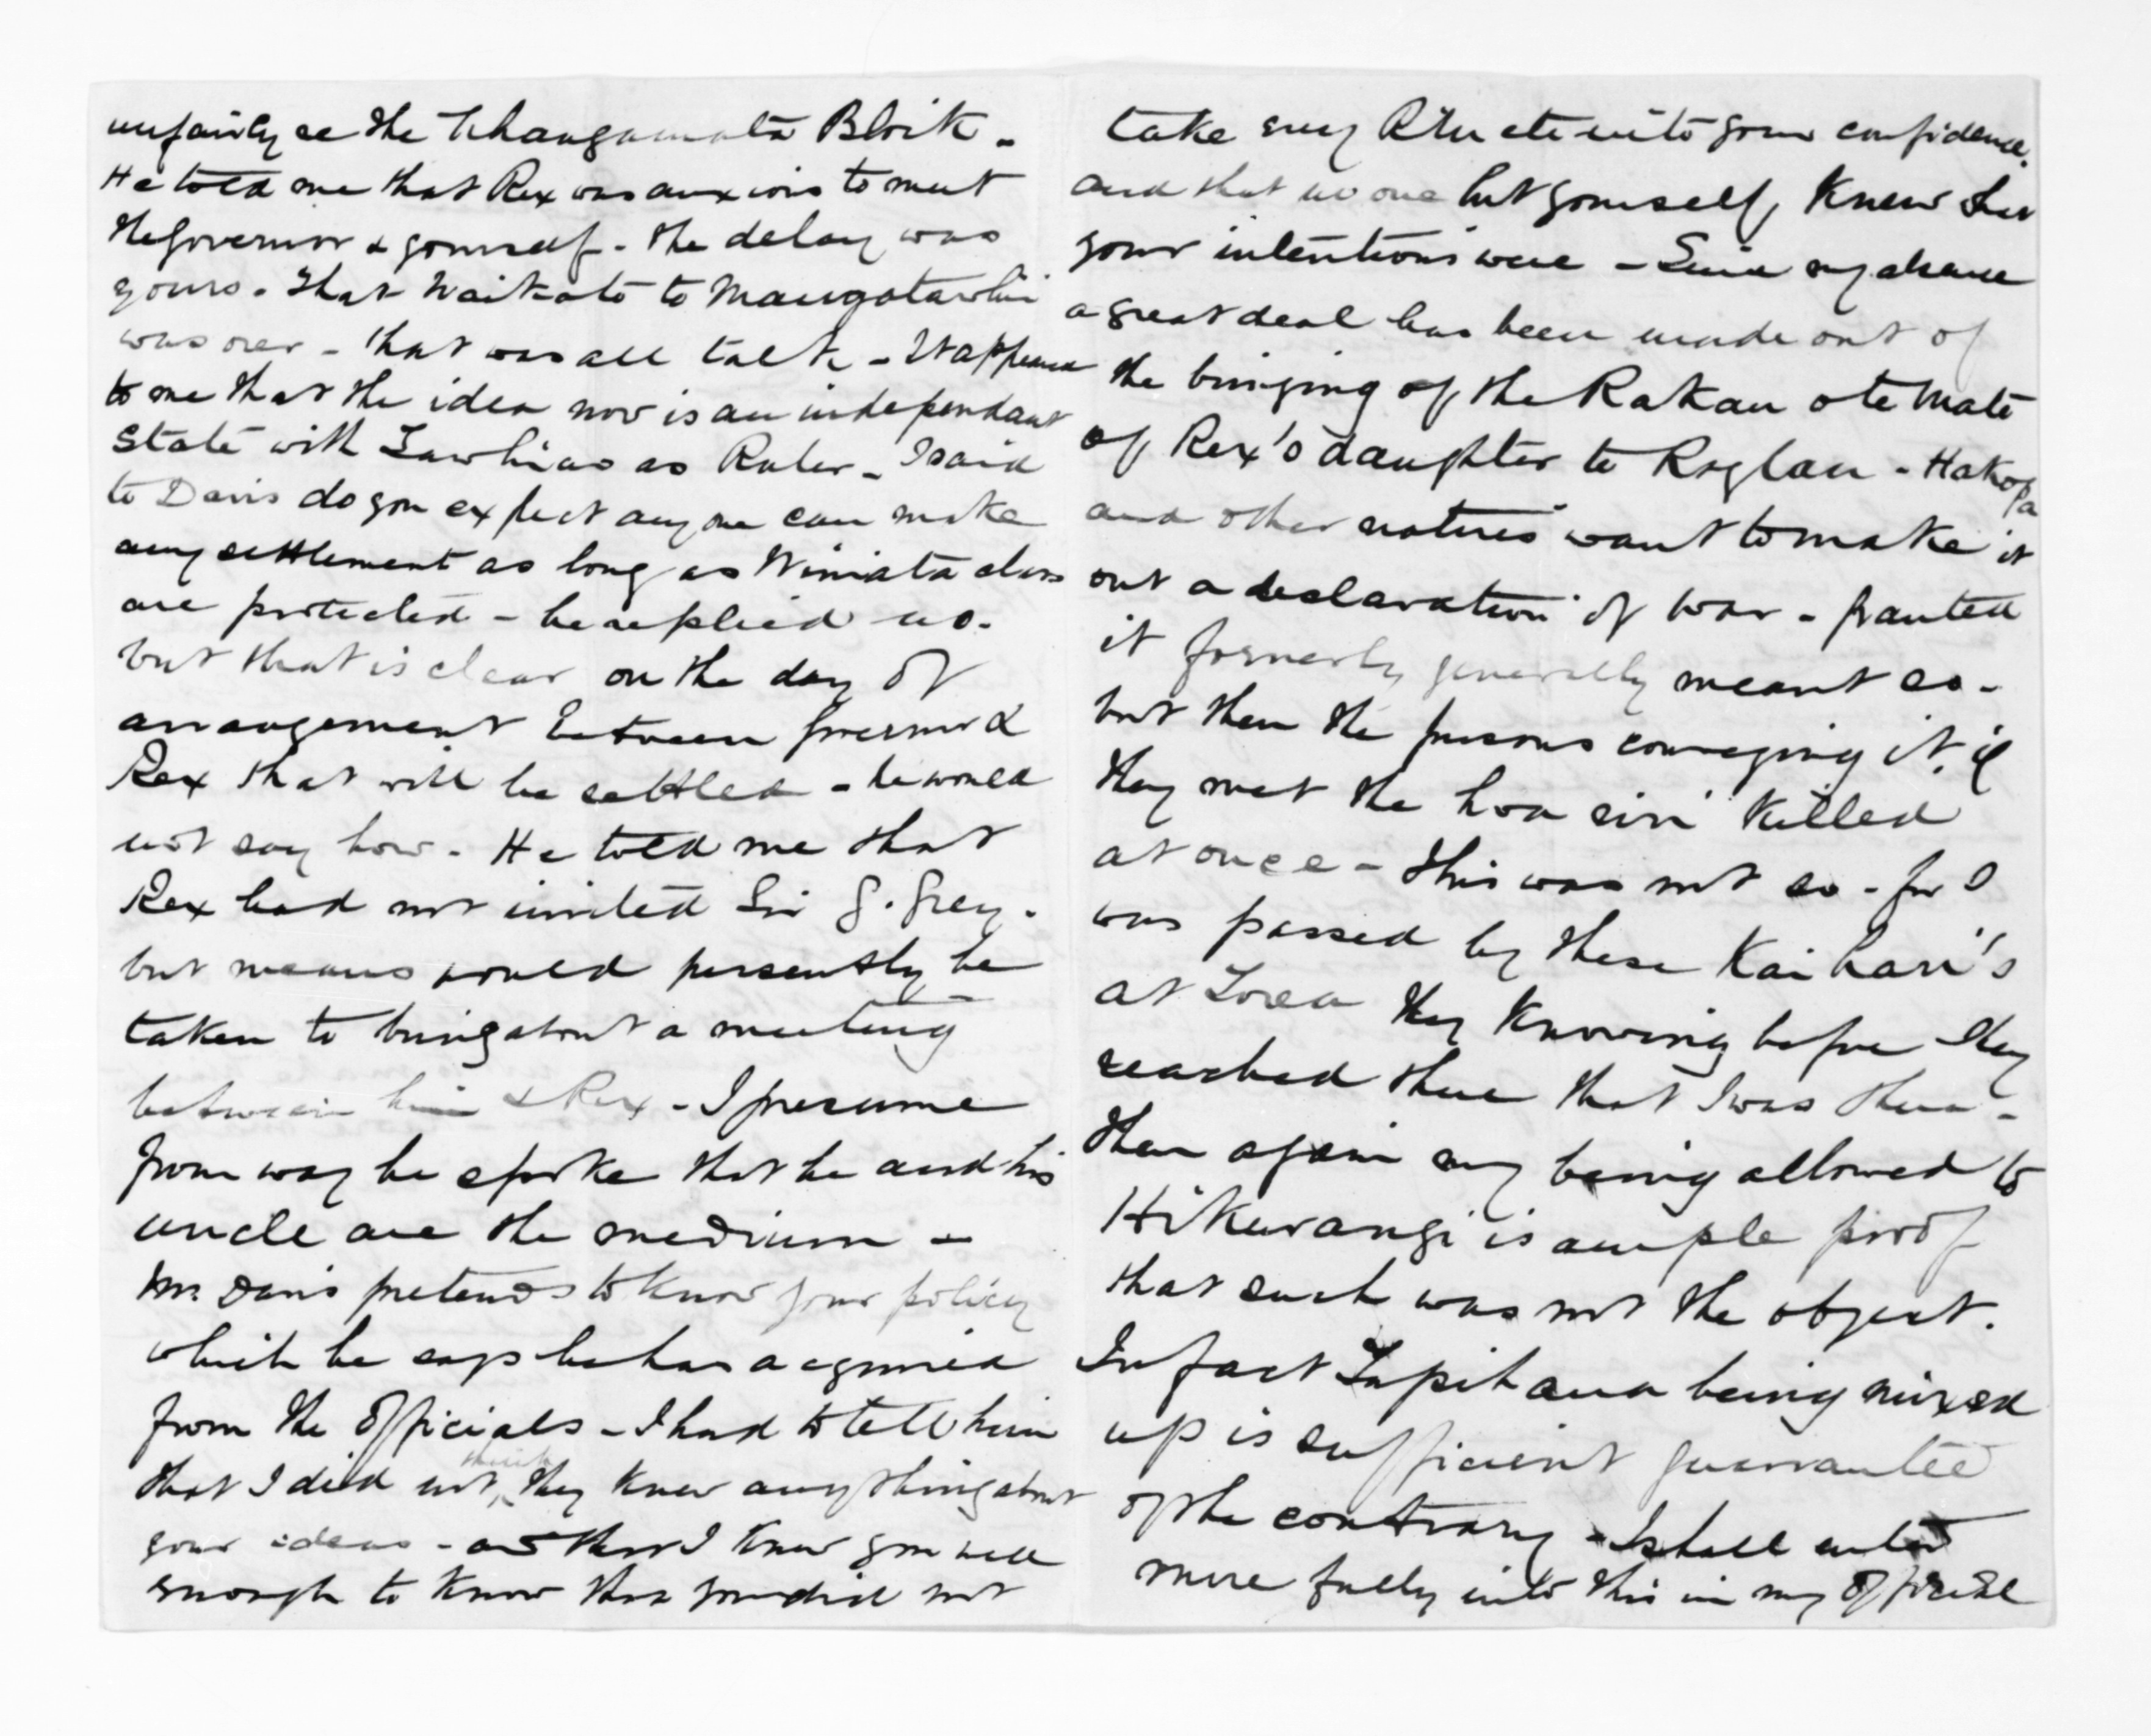 unfairly re the Whangamata Block -
He told me that Rex was anxious to meet
the Governor & yourself - the delay was
yours. That Waikato to Mangatawhiri
was over - that was all talk - It appeared
to me that the idea now is an independant
State with Tawhiao as Ruler - I said
to Davis do you expect any one can make
any settlement as long as Winiata class
are protected - he replied no.
but that is clear on the day of
arrangement between Govermnt &
Rex that will be settled - he would
not say how - He told me that
Rex had not invited Sir G. Grey.
but means would presently be
taken to bring about a meeting
between him & Rex - I presume
from way he spoke that he and his
uncle are the medium -
Mr. Davis pretends to know your policy
which he says he has acquired
from the Officials - I had to tell him
that I did not think they knew anything about
your ideas - and that I knew you well
enough to know that you did not
take every into your confidence.
and that no one but yourself, knew what
your intentions were - Since my absence
a great deal has been made out of
the bringing of the Rakau o te Mate
of Rex's daughter to Raglan - Hakopa
and other natives want to make it
out a declaration of war - granted
it formerly generally meant so -
but then the persons conveying it, if
they met the hoa riri killed
at once - this was not so - for I
was passed by these Kai hari's
at they knowing before they
reached there that I was there -
then again my being allowed to
Hikurangi is ample proof
that such was not the object.
In fact Tapihana being mixed
up is sufficient guarantee
of the contrary - I shall enter
more fully into this in my Official